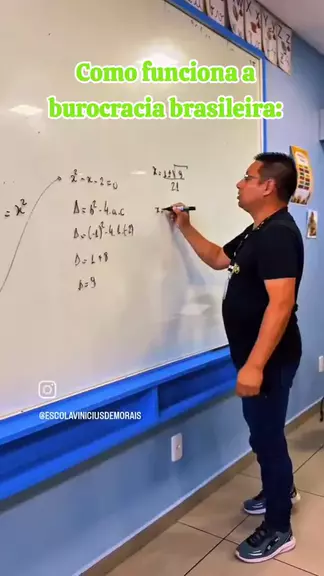 Como funciona a
burocracia brasileira:
x² - x - 2 = 0
= x²
Δ = b² - 4.a.c
Δ = (-1)² - 4.1.(-2)
Δ = 1 + 8
Δ = 9
x = 1 ± √9
2.1
@ESCOLAVINICIUSDEMORAIS